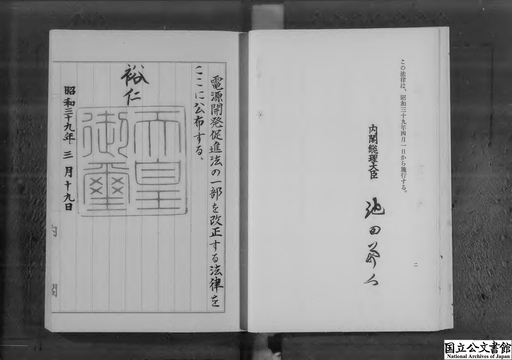 この法律は、昭和三十九年四月一日から施行する。
内閣総理大臣
池田勇人
二
電源開発促進法の一部を改正する法律を
ここに公布する、
裕仁
天皇
御璽
昭和三十九年三月十九日
国立公文書館
National Archives of Japan